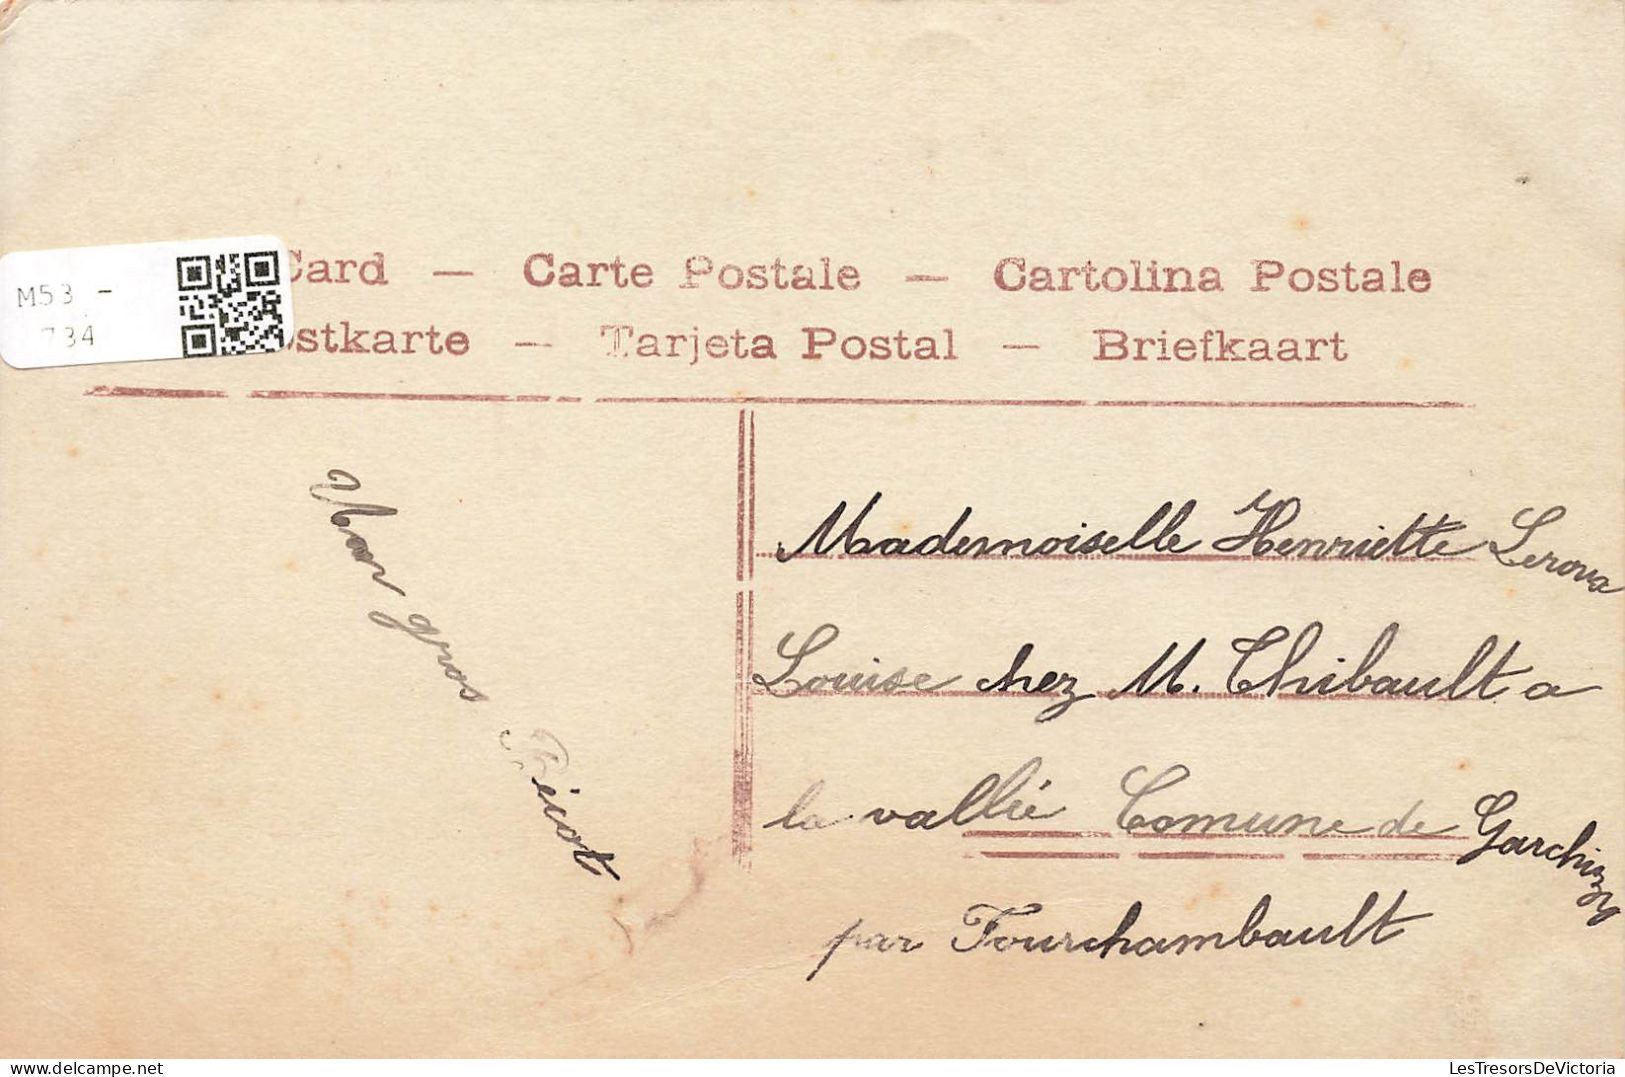 M53 -
734
Card — Carte Postale — Cartolina Postale
ostkarte — Tarjeta Postal — Briefkaart
Mademoiselle Henriette
Louise chez M. Thibault a
la vallée Comune de Garchizy
par Fourchambault
gros
LesTresorsDeVictoria